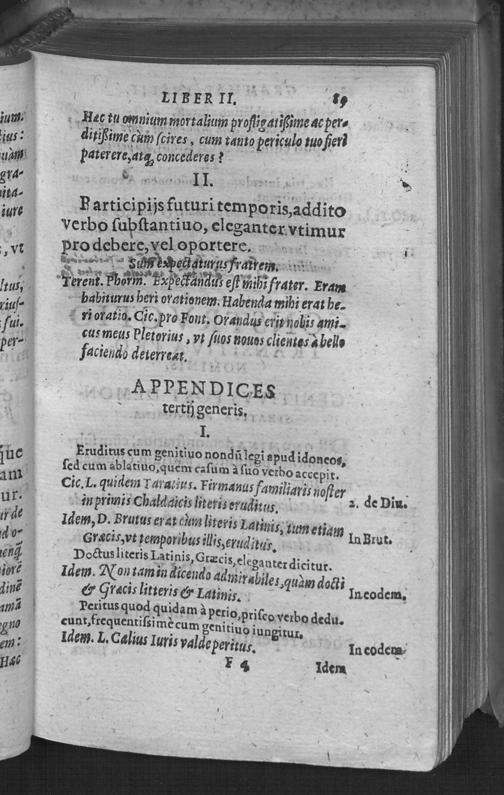 LIBER II. 89
Hæc tu omnium mortalium profligatißime ac per-
ditißime cùm scires, cum tanto periculo tuo fieri
paterere, atq; concederes?
II.
Participijs futuri temporis, addito
verbo substantiuo, eleganter vtimur
pro debere, vel oportere.
Sum expectaturus fratrem.
Terent. Phorm. Expectandus est mihi frater. Eram
habiturus heri orationem. Habenda mihi erat he-
ri oratio. Cic. pro Font. Orandus erit nobis ami-
cus meus Pletorius, vt suos nouos clientes à bello
faciendo deterreat.
APPENDICES
tertij generis.
I.
Eruditus cum genitiuo nondũ legi apud idoneos,
sed cum ablatiuo, quem casum à suo verbo accepit.
Cic. L. quidem Taratius. Firmanus familiaris noster
in primis Chaldaicis literis eruditus. 2. de Diu.
Idem, D. Brutus erat cùm literis Latinis, tum etiam
Græcis, vt temporibus illis, eruditus. In Brut.
Doctus literis Latinis, Græcis, eleganter dicitur.
Idem. Non tam in dicendo admirabiles, quàm docti
& Græcis litteris & Latinis. In eodem.
Peritus quod quidam à perio, prisco verbo dedu-
cunt, frequentissimè cum genitiuo iungitur.
Idem. L. Cælius Iuris valde peritus. In eodem
F 4 Idem
ium.
ius:
quàm
gra-
ita-
iure
, vt
ltus,
rius-
sui.
per-
que
am
ur.
ur de
do-
uenq̃
iorẽ
dinẽ
amã
egno
em:
Hæc